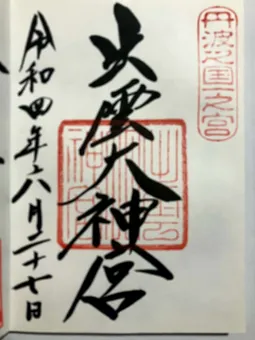 丹波之国一之宮
出雲大神宮
令和四年六月二十七日